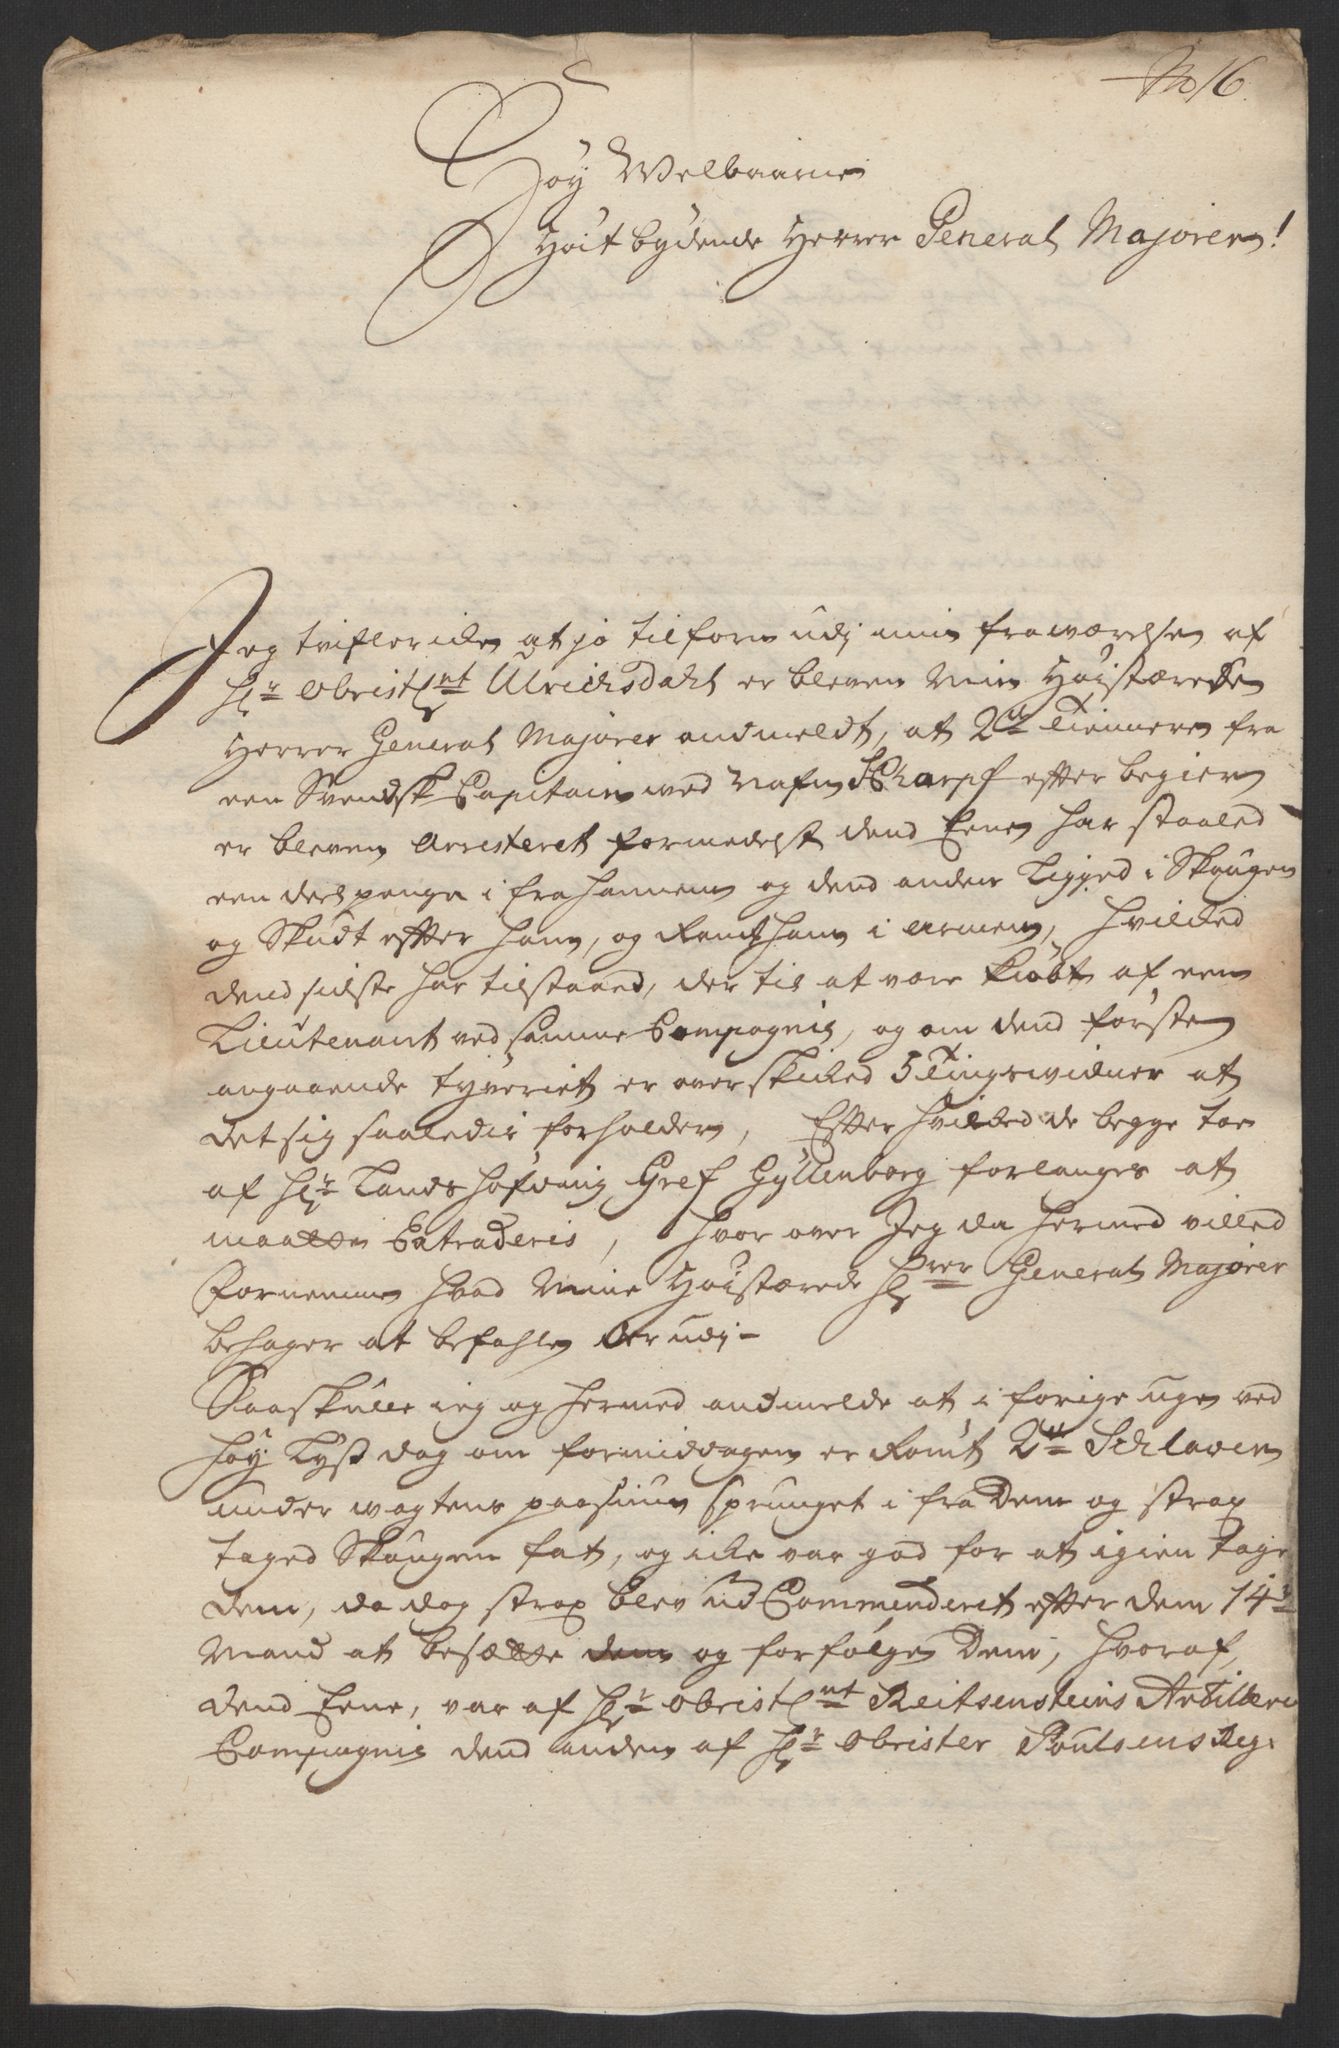 No 16.
Høy Welbaarne
Høit bydende Herrer General Majoren!
Jeg tvifler iche at jo tilforn udj min fraværelse af
Hr: Obristl:nt Ulrichsdahl er bleven Min Høistærede
Herrer General Majorer andmeldt, at 2de Tienneren fra
een Svendsk Capitain wed Nafn Scharpf efter begiern
er bleven Arresteret formedelst dend Eene har staaled
een deel penge i fra hannem og dend anden Ligged i Skougen
og Skudt efter ham, og Ramt ham i Armen, hvilked
dend sidste har tilstaaed, der til at være kiøbt af een
Lieutenant ved samme Compagnie, og om dend første
angaaende tyveriet er over skiked 5 Tingswidner at
det sig saaledis forholder, Efter hvilked de begge toe
af Hr: Landshøfding Gref Gyllenborg forlanges at
maatte Extraderis, hvor over Jeg da hermed villed
fornemme hvad Mine Høistærede Hrrer General Majorer
behager at befahle der udj -
Saa skulle ieg og hermed andmelde at i forige ugen ved
høy Lyß dag om formiddagen er Romt 2de Schlaver
under wagtens paasiun sprunget i fra Dem og strax
taged Skougen fat, og iche var god for at igien tage
dem, da dog strax blev ud Commenderet efter dem 14
Mand at besætte dem og forfølgen Dem, hvoraf,
dend Eene, var af Hr: Obristl:nt Reitsensteins Artilleri
Compagnie dend anden af Hr: Obrister Poulsens Reg: